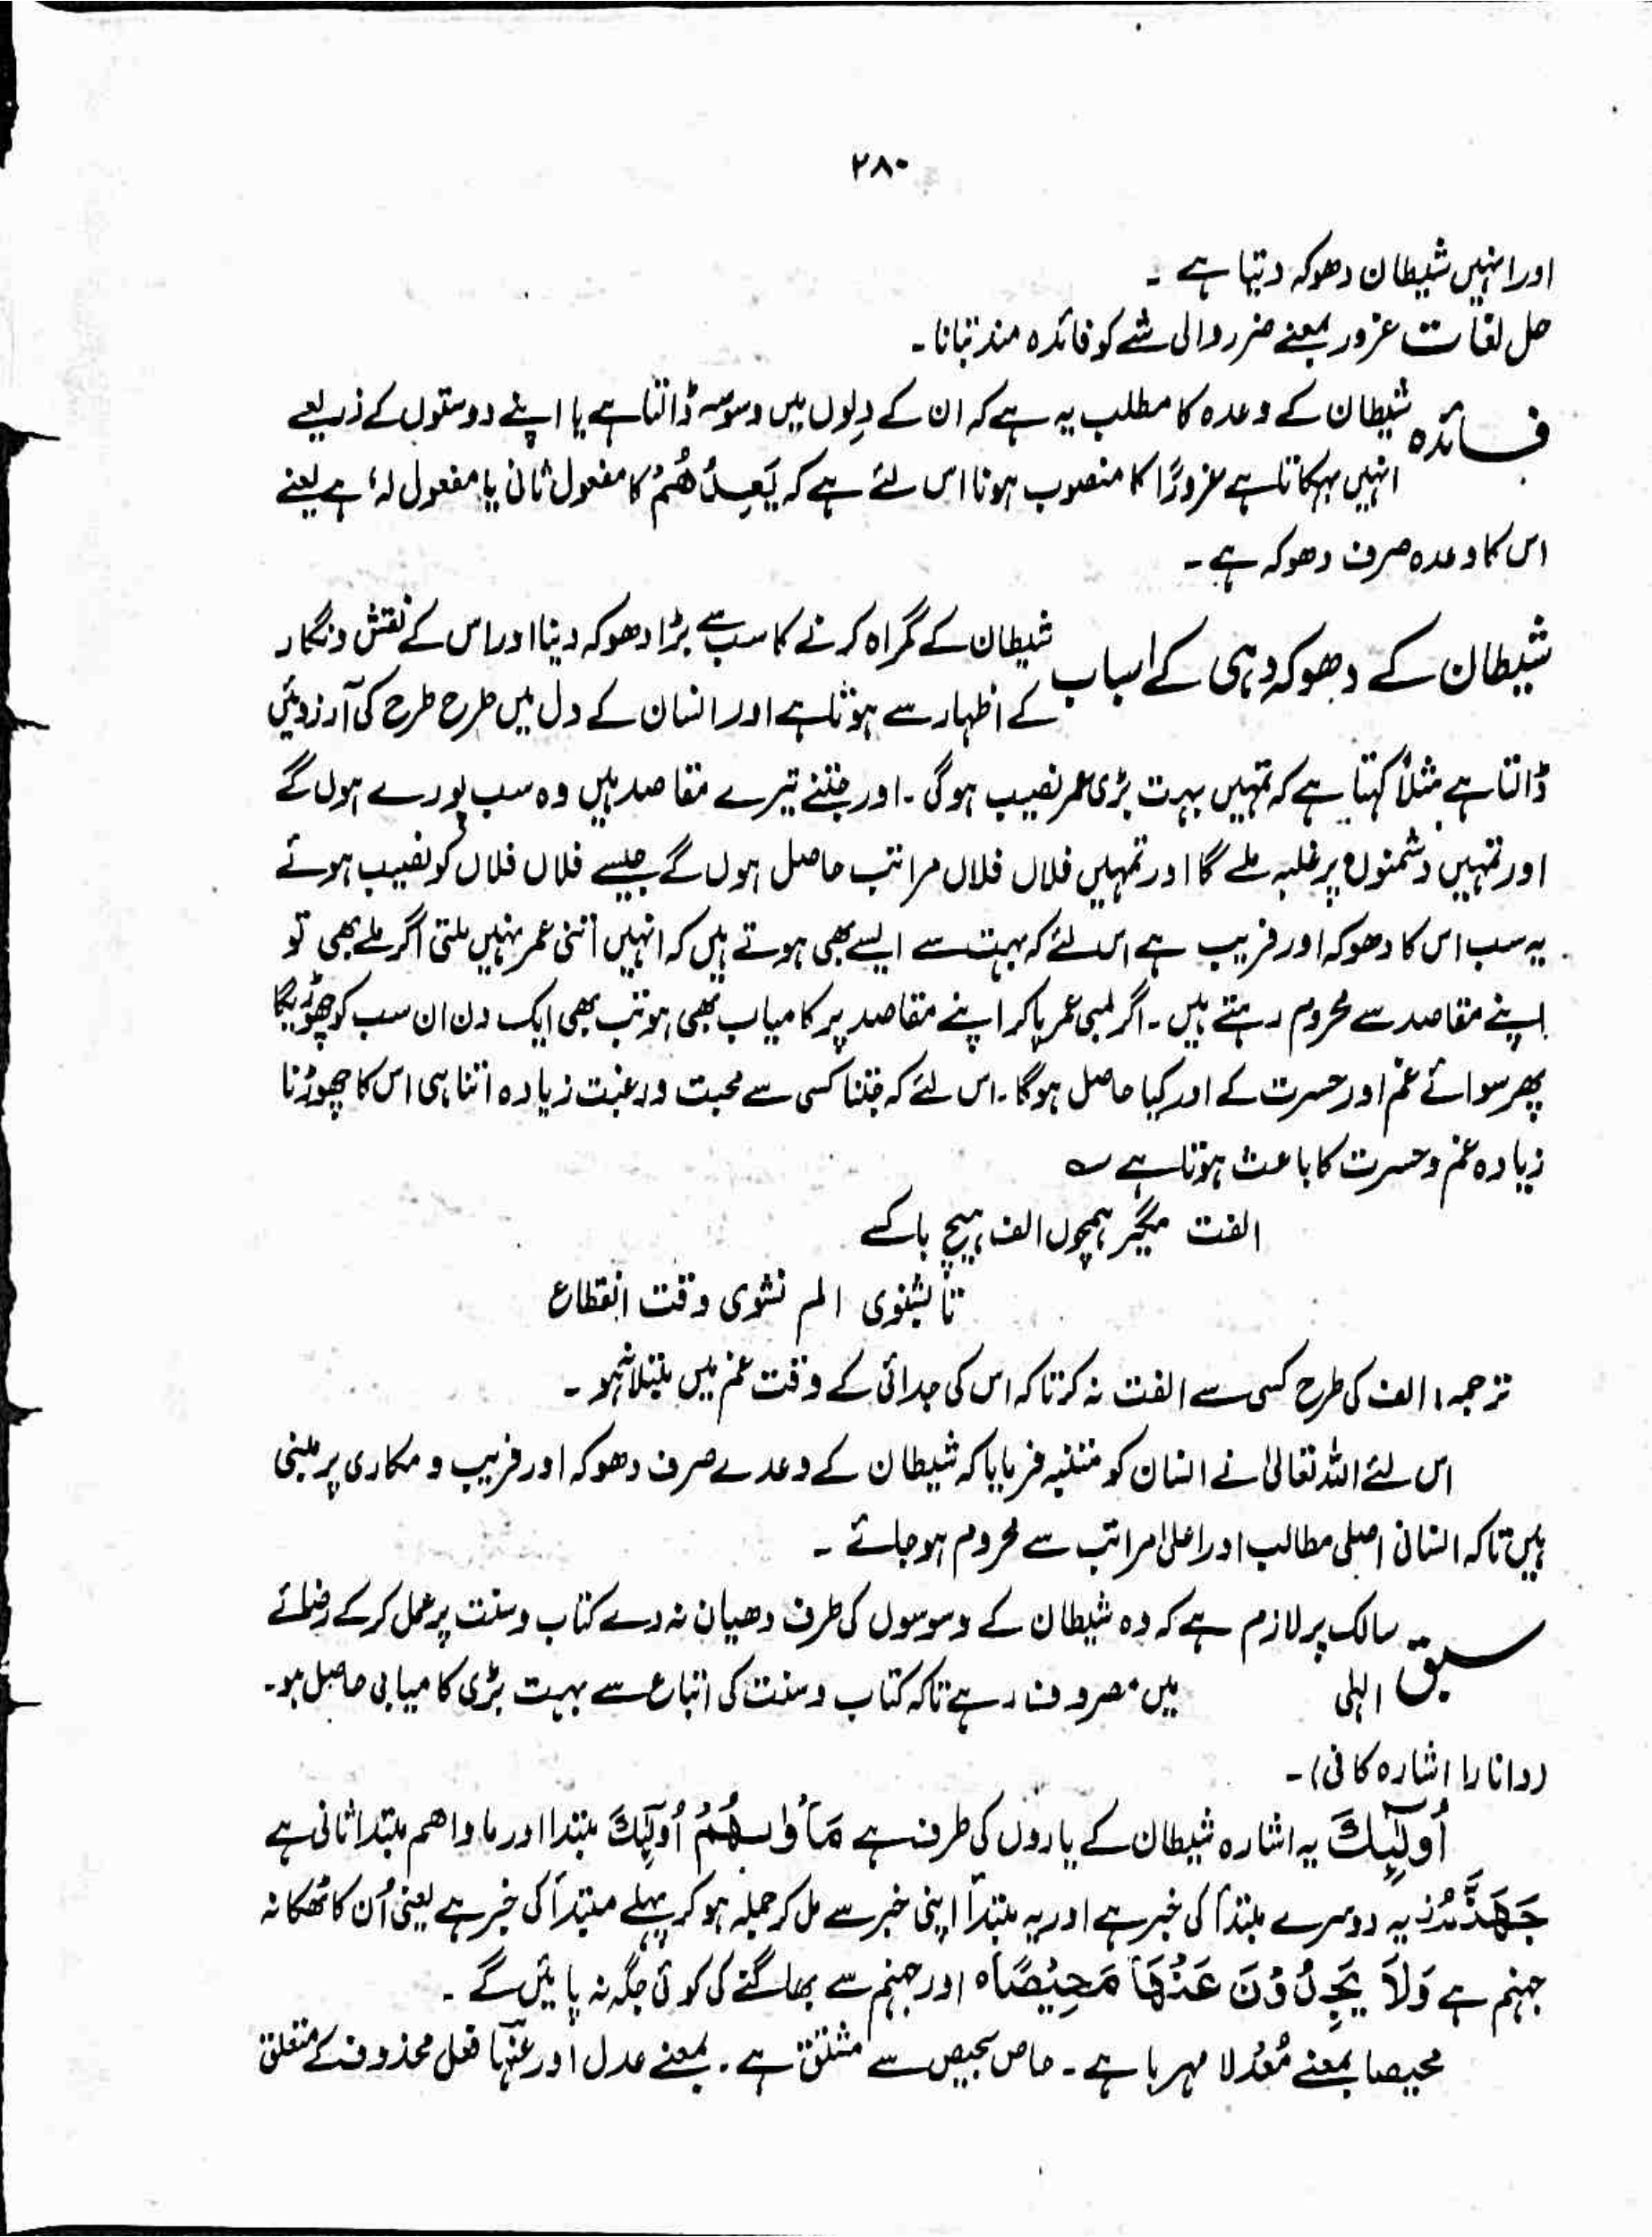 ۲۸۰
اور انہیں شیطان دھوکہ دیتا ہے ۔
حل لغات غرور بمعنے ضرر والی شے کو فائدہ مند بتانا ۔
فائدہ شیطان کے وعدہ کا مطلب یہ ہے کہ ان کے دِلوں میں وسوسہ ڈالتا ہے یا اپنے دوستوں کے ذریعے
انہیں بہکاتا ہے غرورًا کا منصوب ہونا اس لئے ہے کہ یَعِدُھُمْ کا مفعول ثانی یا مفعول لہٗ ہے یعنے
اس کا وعدہ صرف دھوکہ ہے ۔
شیطان کے دھوکہ دہی کے اسباب شیطان کے گمراہ کرنے کا سب سے بڑا دھوکہ دینا اور اس کے نقش و نگار
کے اظہار سے ہوتا ہے اور انسان کے دل میں طرح طرح کی آرزوئیں
ڈالتا ہے مثلاً کہتا ہے کہ تمہیں بہت بڑی عمر نصیب ہوگی ۔ اور جتنے تیرے مقاصد ہیں وہ سب پورے ہوں گے
اور تمہیں دشمنوں پر غلبہ ملے گا اور تمہیں فلاں فلاں مراتب حاصل ہوں گے جیسے فلاں فلاں کو نصیب ہوئے
یہ سب اس کا دھوکہ اور فریب ہے اس لئے کہ بہت سے ایسے بھی ہوتے ہیں کہ انہیں اتنی عمر نہیں ملتی اگر ملے بھی تو
اپنے مقاصد سے محروم رہتے ہیں ۔ اگر لمبی عمر پا کر اپنے مقاصد پر کامیاب بھی ہو تب بھی ایک دن ان سب کو چھوڑیگا
پھر سوائے غم اور حسرت کے اور کیا حاصل ہوگا ۔ اس لئے کہ جتنا کسی سے محبت و رغبت زیادہ اتنا ہی اس کا چھوڑنا
زیادہ غم و حسرت کا باعث ہوتا ہے ؎
الفت مگیر ہمچوں الف ہیچ باکسے
تا بشنوی الم نشوی وقت انقطاع
ترجمہ: الف کی طرح کسی سے الفت نہ کر تاکہ اس کی جدائی کے وقت غم میں مبتلا نہ ہو ۔
اس لئے اللہ تعالیٰ نے انسان کو متنبہ فرمایا کہ شیطان کے وعدے صرف دھوکہ اور فریب و مکاری پر مبنی
ہیں تاکہ انسانی اصلی مطالب اور اعلیٰ مراتب سے محروم ہو جائے ۔
سبق سالک پر لازم ہے کہ وہ شیطان کے وسوسوں کی طرف دھیان نہ دے کتاب و سنت پر عمل کر کے رضائے
الہٰی میں مصروف رہے تاکہ کتاب و سنت کی اتباع سے بہت بڑی کامیابی حاصل ہو۔
(دانا را اشارہ کافی) ۔
اُولٰٓئِکَ یہ اشارہ شیطان کے یاروں کی طرف ہے مَاْوٰىھُمْ اُولٰٓئِکَ مبتدا اور ماواھم مبتدا ثانی ہے
جَھَنَّمُ ز یہ دوسرے مبتدأ کی خبر ہے اور یہ مبتدأ اپنی خبر سے مل کر جملہ ہو کر پہلے مبتدأ کی خبر ہے یعنی اُن کا ٹھکانہ
جہنم ہے وَلَا یَجِدُوْنَ عَنْھَا مَحِیْصًا ہ اور جہنم سے بھاگنے کی کوئی جگہ نہ پائیں گے ۔
محیصا بمعنے مُعْدلا مہربا ہے ۔ حاص یحیص سے مشتق ہے ۔ بمعنے عدل اور عنہا فعل محذوف کے متعلق